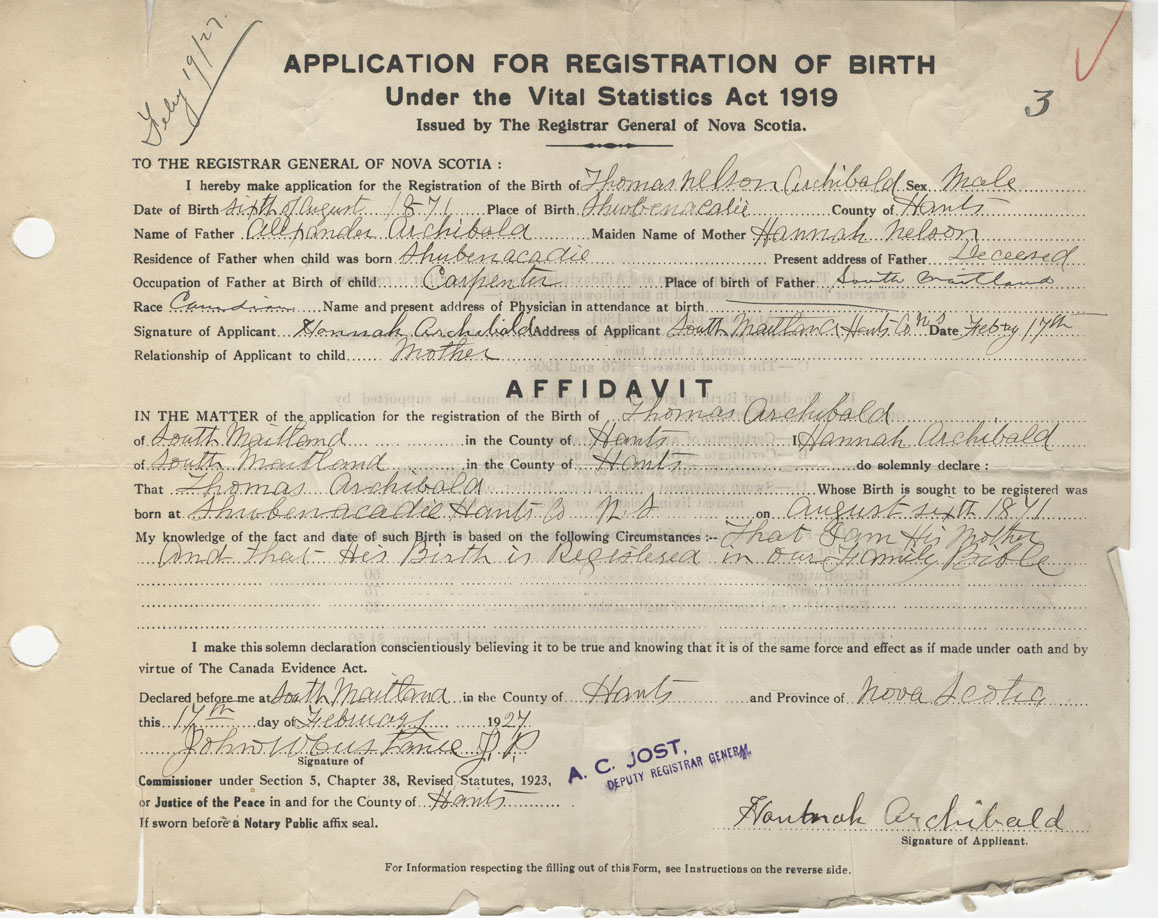 Feby 19/27.
3
APPLICATION FOR REGISTRATION OF BIRTH
Under the Vital Statistics Act 1919
Issued by The Registrar General of Nova Scotia.
TO THE REGISTRAR GENERAL OF NOVA SCOTIA :
I hereby make application for the Registration of the Birth of Thomas Nelson Archibald Sex Male
Date of Birth sixth of August 1871 Place of Birth Shubenacadie County of Hants
Name of Father Alexander Archibald Maiden Name of Mother Hannah Nelson
Residence of Father when child was born Shubenacadie Present address of Father Deceesed
Occupation of Father at Birth of child Carpenter Place of birth of Father South Maitland
Race Canadian Name and present address of Physician in attendance at birth
Signature of Applicant Hannah Archibald Address of Applicant South Maitland Hants Co NS Date Febuy 17th
Relationship of Applicant to child Mother
AFFIDAVIT
IN THE MATTER of the application for the registration of the Birth of Thomas Archibald
of South Maitland in the County of Hants I Hannah Archibald
of South Maitland in the County of Hants do solemnly declare :
That Thomas Archibald Whose Birth is sought to be registered was
born at Shubenacadie Hants Co N.S on August sixth 1871
My knowledge of the fact and date of such Birth is based on the following Circumstances :- That I am His Mother
and that His Birth is Registered in our Family Bible
I make this solemn declaration conscientiously believing it to be true and knowing that it is of the same force and effect as if made under oath and by
virtue of The Canada Evidence Act.
Declared before me at South Maitland in the County of Hants and Province of Nova Scotia
this 17th day of February 1927
John W Custance J.P.
Signature of
Commissioner under Section 5, Chapter 38, Revised Statutes, 1923,
or Justice of the Peace in and for the County of Hants
If sworn before a Notary Public affix seal.
A. C. JOST,
DEPUTY REGISTRAR GENERAL
Hannah Archibald
Signature of Applicant.
For Information respecting the filling out of this Form, see Instructions on the reverse side.